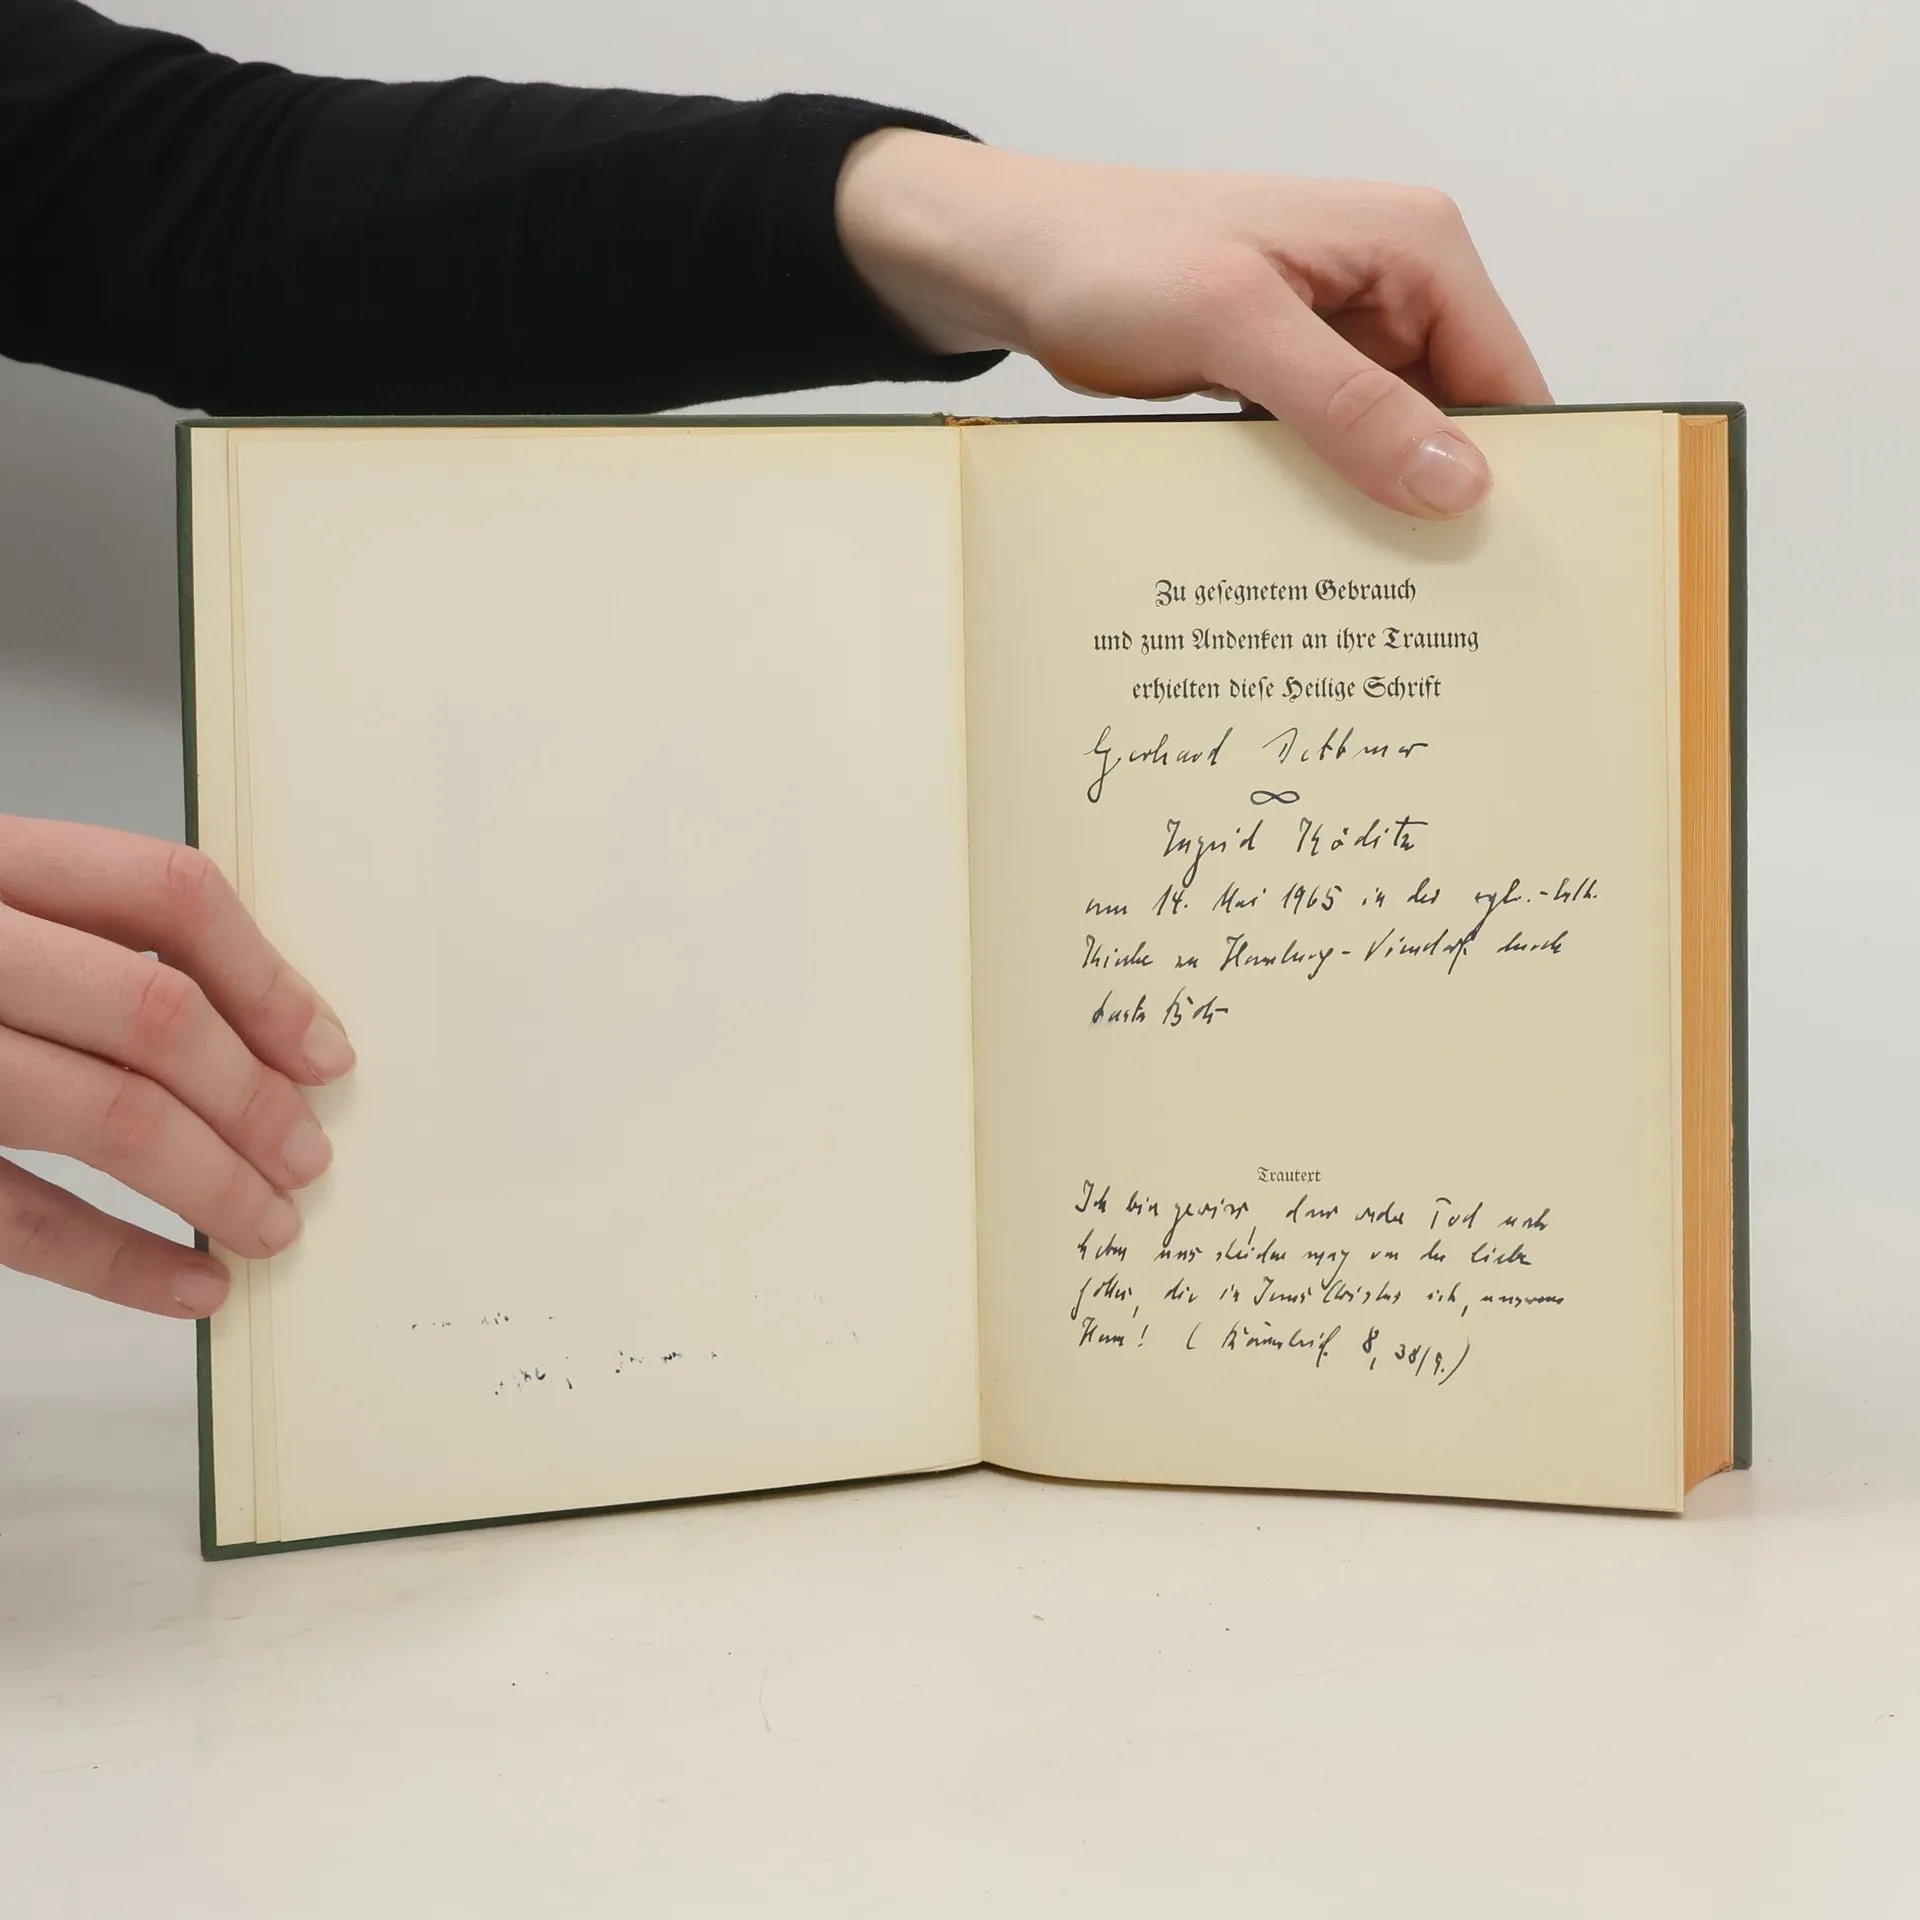 Zu gesegnetem Gebrauch
und zum Andenken an ihre Trauung
erhielten diese Heilige Schrift
Gerhard Dettmer
∞
Ingrid Köditz
am 14. Mai 1965 in der evgl.-luth.
Kirche zu Hamburg- durch
Trautext
Ich bin gewiss, dass weder Tod noch
Leben uns scheiden mag von der Liebe
Gottes, die in Jesus Christus ist, unserem
Herrn! (Römerbrief 8, 38/9.)